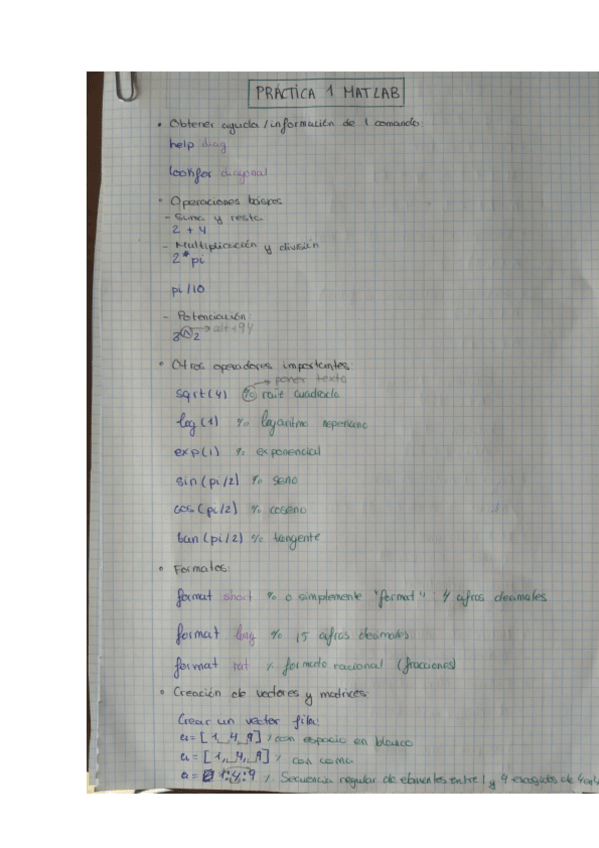 PRÁCTICA 1 MATLAB
• Obtener ayuda / información de 1 comando:
help diag
lookfor diagonal
• Operaciones básicas
- Suma y resta
2 + 4
- Multiplicación y división
2 * pi
pi /10
- Potenciación:
3^2 → alt + 94
• Otros operadores importantes:
→ poner texto
sqrt(4) % raiz cuadrada
log(1) % logaritmo neperiano
exp(1) % exponencial
sin (pi/2) % seno
cos (pi/2) % coseno
tan (pi/2) % tangente
• Formatos:
format short % o simplemente "format" : 4 cifras decimales
format long % 15 cifras decimales
format rat % formato racional (fracciones)
• Creación de vectores y matrices:
Crear un vector fila:
a = [1_4_9] % con espacio en blanco
a = [1,_4,_9] % con coma
a = 1:4:9 % Secuencia regular de elementos entre 1 y 9 escogidos de 4